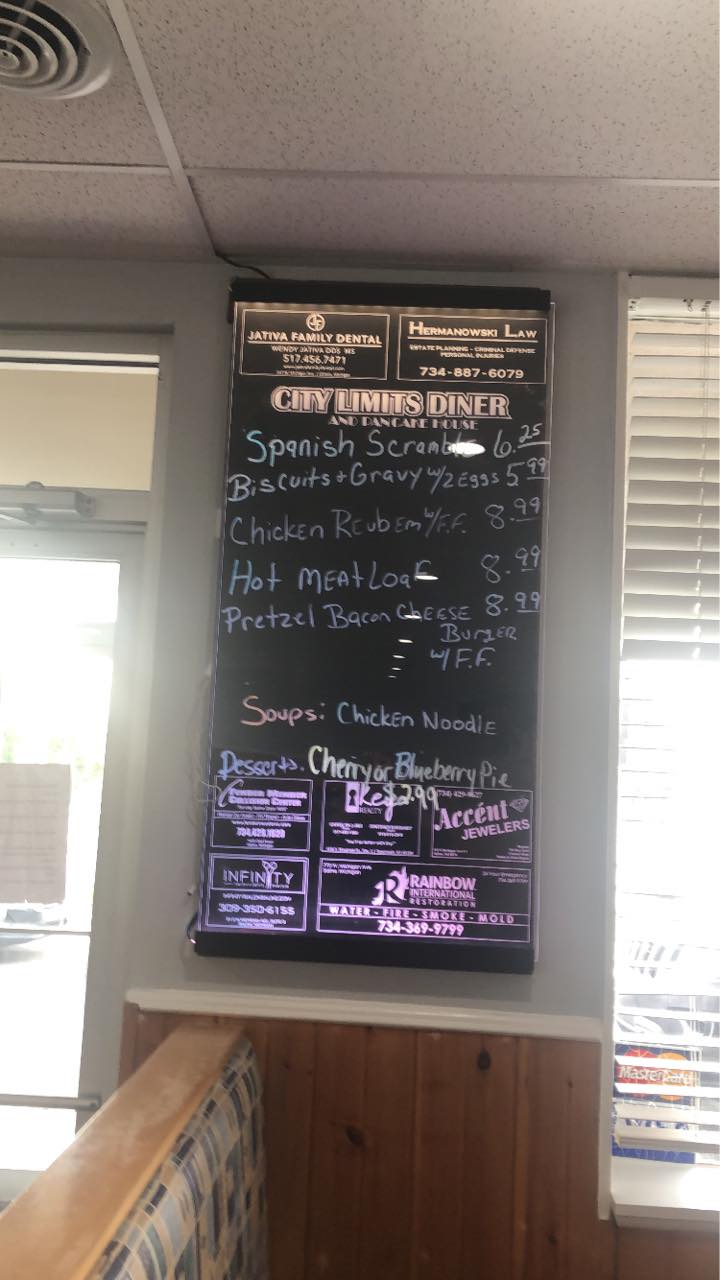 JATIVA FAMILY DENTAL
WENDY JATIVA DDS MS
517.456.7471
HERMANOWSKI LAW
ESTATE PLANNING - CRIMINAL DEFENSE
PERSONAL INJURIES
734-887-6079
CITY LIMITS DINER
AND PANCAKE HOUSE
Spanish Scramble 6.25
Biscuits + Gravy w/2 Eggs 5.99
Chicken Reuben w/F.F. 8.99
Hot Meat Loaf 8.99
Pretzel Bacon Cheese 8.99
Burger
w/ F.F.
Soups: Chicken Noodle
Desserts. Cherry or Blueberry Pie
$2.99
COLLISION CENTER
Key
REALTY
Accént
JEWELERS
INFINITY
309-350-6155
RAINBOW
INTERNATIONAL
RESTORATION
WATER - FIRE - SMOKE - MOLD
734-369-9799
MasterCard